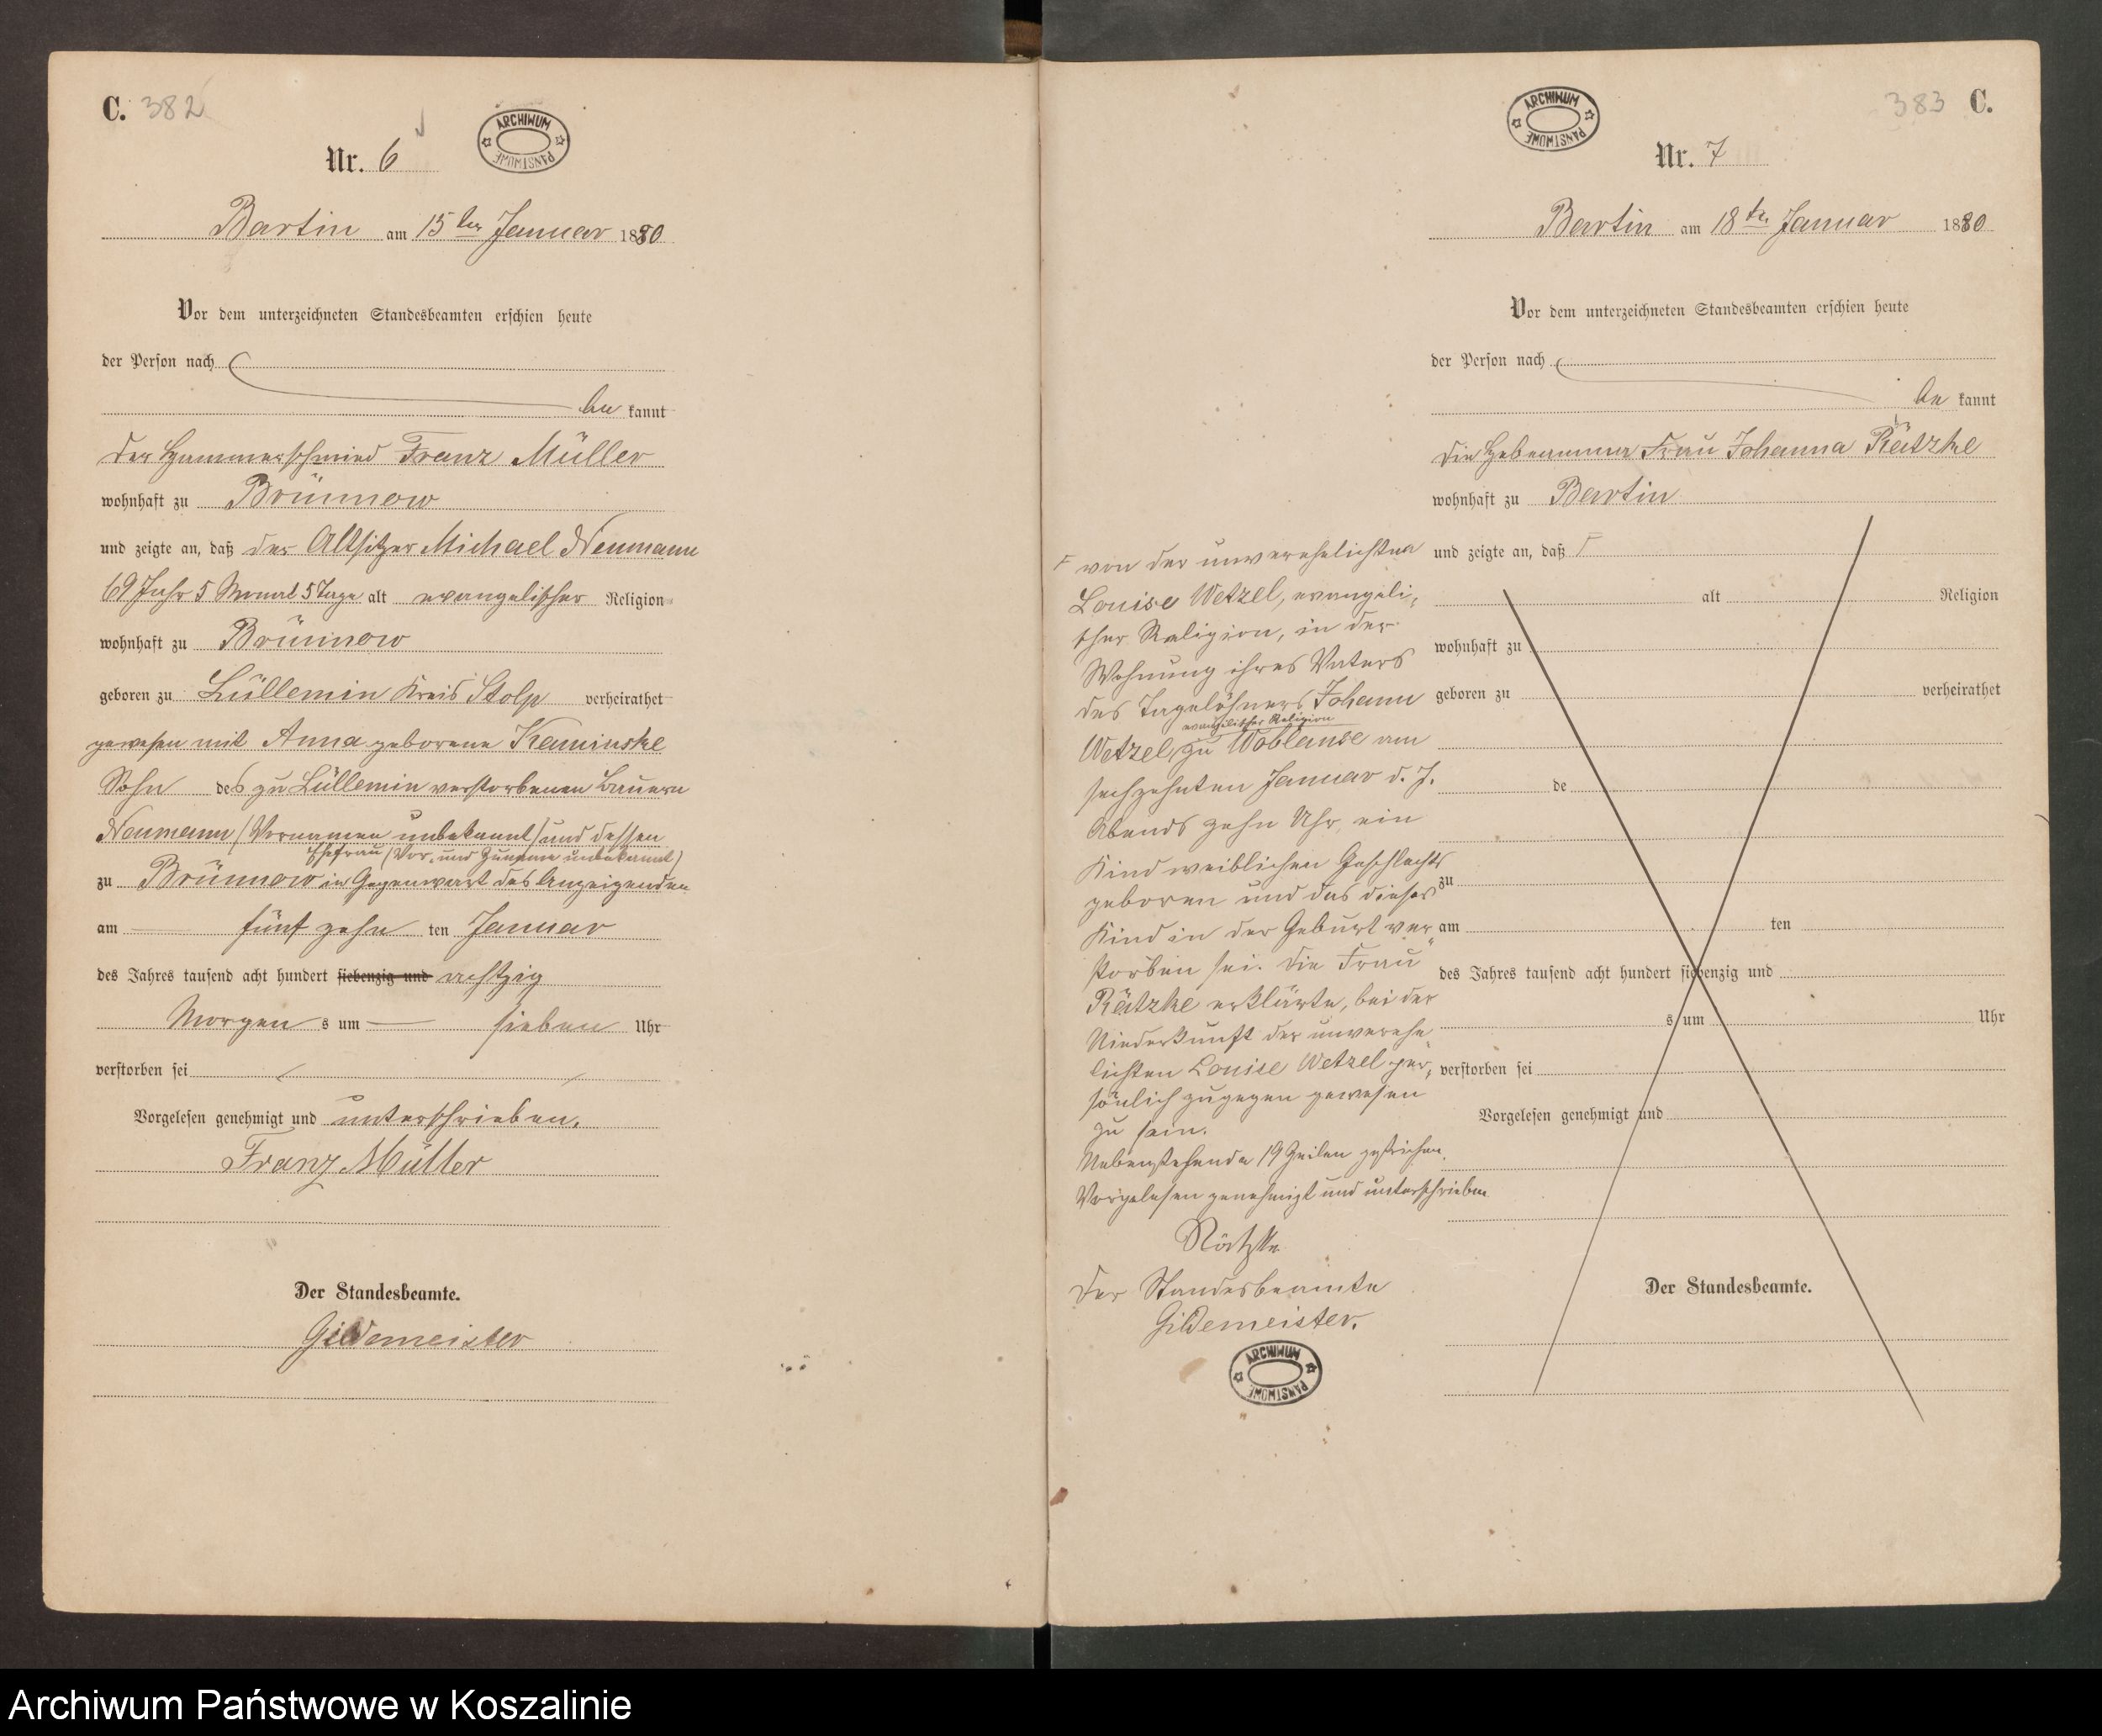 C. 382
ARCHIWUM PAŃSTWOWE
Nr. 6
Bartin am 15ten Januar 1880
Vor dem unterzeichneten Standesbeamten erschien heute
der Person nach
be kannt
der Hammerschmied Franz Müller
wohnhaft zu Brünnow
und zeigte an, daß der Altsitzer Michael Neumann
69 Jahr 5 Monat 5 Tage alt evangelischer Religion
wohnhaft zu Brünnow
geboren zu Lüllemin Kreis Stolp verheirathet
gewesen mit Anna geborene Kaminske
Sohn des zu Lüllemin verstorbenen Bauern
Neumann (Vornamen unbekannt) und dessen
Ehefrau (Vor- und Zuname unbekannt)
zu Brünnow in Gegenwart des Anzeigenden
am fünf zehn ten Januar
des Jahres tausend acht hundert siebenzig und achtzig
Morgen s um sieben Uhr
verstorben sei
Vorgelesen genehmigt und unterschrieben.
Franz Müller
Der Standesbeamte.
Gildemeister
383 C.
ARCHIWUM PAŃSTWOWE
Nr. 7
Bartin am 18ten Januar 1880
Vor dem unterzeichneten Standesbeamten erschien heute
der Person nach
be kannt
die Hebeamme Frau Johanna Rätzke
wohnhaft zu Bartin
und zeigte an, daß
alt Religion
wohnhaft zu
geboren zu verheirathet
de
zu
am ten
des Jahres tausend acht hundert siebenzig und
s um Uhr
verstorben sei
Vorgelesen genehmigt und
Der Standesbeamte.
von der unverehelichten
Louise Wetzel, evangeli-
scher Religion, in der
Wohnung ihres Vaters
des Tagelöhners Johann
evangelischer Religion
Wetzel zu Woblanse am
sechzehnten Januar d. J.
Abends zehn Uhr ein
Kind weiblichen Geschlechts
geboren und das dieses
Kind in der Geburt ver-
storben sei. Die Frau
Rätzke erklärte, bei der
Niederkunft der unverehe-
lichten Louise Wetzel per-
sönlich zugegen gewesen
zu sein.
Nebenstehende 19 Zeilen gestrichen.
Vorgelesen genehmigt und unterschrieben
Rätzke
Der Standesbeamte
Gildemeister.
ARCHIWUM PAŃSTWOWE
Archiwum Państwowe w Koszalinie